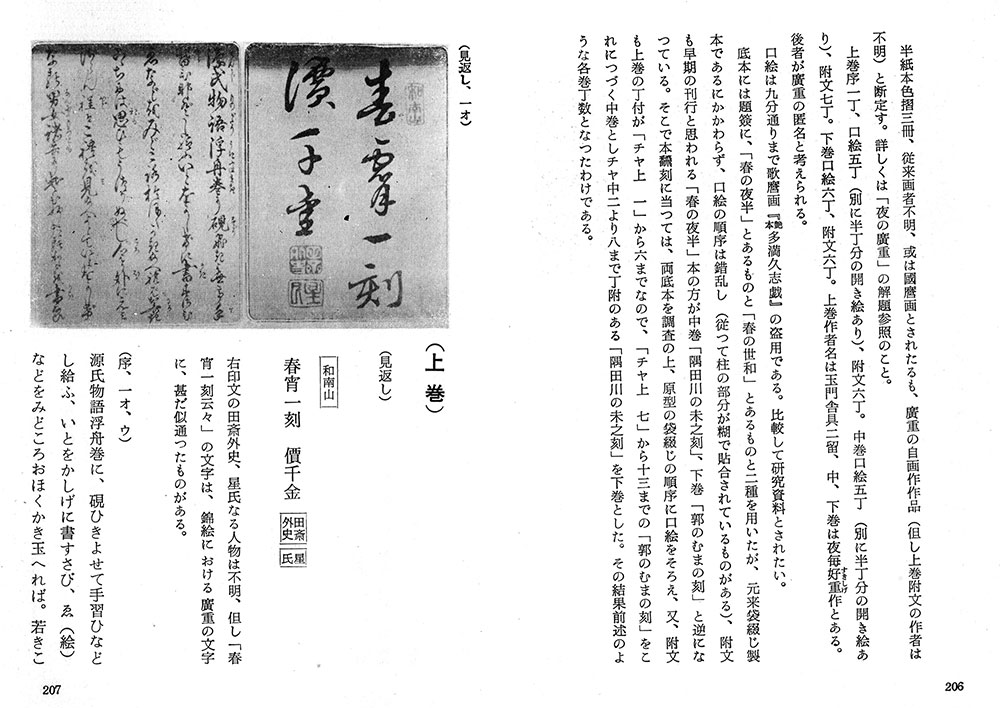 半紙本色摺三冊、従来画者不明、或は國麿画とされたるも、廣重の自画作作品（但し上巻附文の作者は
不明）と断定す。詳しくは「夜の廣重」の解題参照のこと。
上巻序一丁、口絵五丁（別に半丁分の開き絵あり）、附文六丁。中巻口絵五丁（別に半丁分の開き絵あ
り）、附文七丁。下巻口絵六丁、附文六丁。上巻作者名は玉門舎具二留、中、下巻は夜毎好重作とある。
すきしげ
後者が廣重の匿名と考えられる。
口絵は九分通りまで歌麿画『艶本多満久志戯』の盗用である。比較して研究資料とされたい。
底本には題簽に、「春の夜半」とあるものと「春の世和」とあるものと二種を用いたが、元来袋綴じ製
本であるにかかわらず、口絵の順序は錯乱し（従つて柱の部分が糊で貼合されているものがある）、附文
も早期の刊行と思われる「春の夜半」本の方が中巻「隅田川の未之刻」、下巻「郭のむまの刻」と逆にな
つている。そこで本飜刻に当つては、両底本を調査の上、原型の袋綴じの順序に口絵をそろえ、又、附文
も上巻の丁付が「チヤ上　一」から六までなので、「チヤ上　七」から十三までの「郭のむまの刻」をこ
れにつづく中巻としチヤ中二より八まで丁附のある「隅田川の未之刻」を下巻とした。その結果前述のよ
うな各巻丁数となつたわけである。
206
（見返し、一オ）
春宵一刻
價千金
（上巻）
（見返し）
和南山
春宵一刻　價千金　田斎外史　星氏
右印文の田斎外史、星氏なる人物は不明、但し「春
宵一刻云々」の文字は、錦絵における廣重の文字
に、甚だ似通つたものがある。
（序、一オ、ウ）
源氏物語浮舟巻に、硯ひきよせて手習ひなど
し給ふ、いとをかしげに書すさび、ゑ（絵）
などをみどころおほくかき玉へれば。若きこ
207